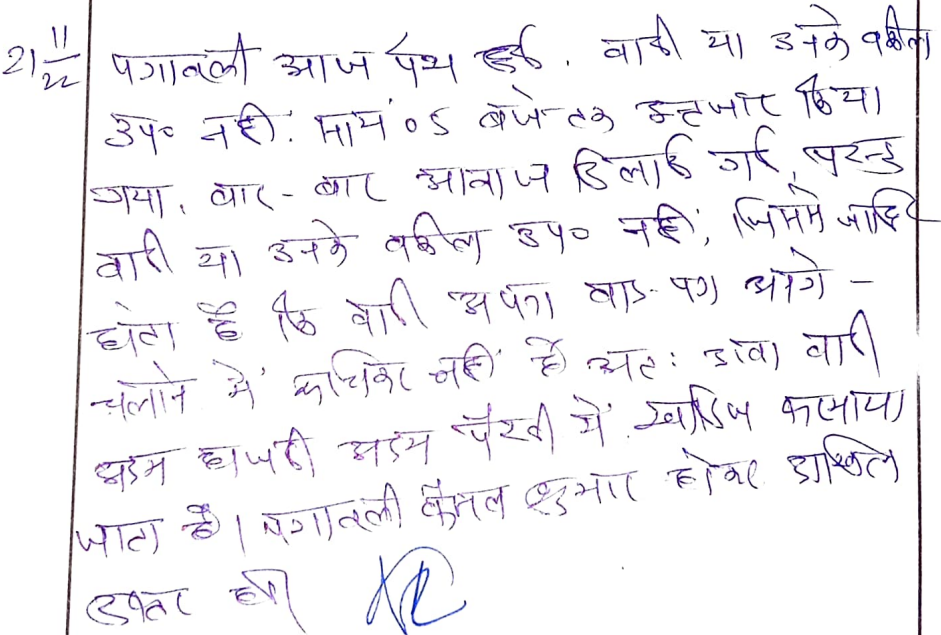 21 11/22 पत्रावली आज पेश हुई. वादी या उनके वकील
उप० नहीं. सायं 05 बजे तक इन्तजार किया
गया. बार-बार आवाज दिलाई गई, परन्तु
वादी या उनके वकील उप० नहीं, जिससे जाहिर
होता है कि वादी अपना वाद-पत्र आगे -
चलाने में नहीं है अतः दावा वादी
अदम हाजरी अदम पैरवी में खारिज फरमाया
जाता है। पत्रावली फैसल शुमार होकर दाखिल
दफ्तर हो।